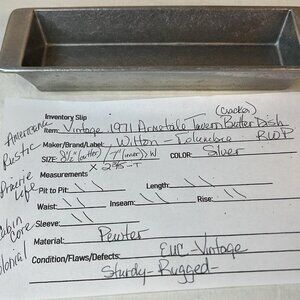 Inventory Slip
(Cracker)
Item: Vintage 1971 Armetale Tavern Butter Dish
Maker/Brand/Label: Wilton - Columbia BWP
SIZE: 8½" (outer) / 7" (inner) > W COLOR: Silver
x 2.75 - T
Measurements
Pit to Pit: \ \ Length: \ \
Waist: \ \ Inseam: \ \ Rise: \ \
Sleeve: \ \
Material: Pewter
Condition/Flaws/Defects: EUC - Vintage
Sturdy - Rugged -
Americana
Rustic
Prairie
Life
Cabin
Core
Colonial